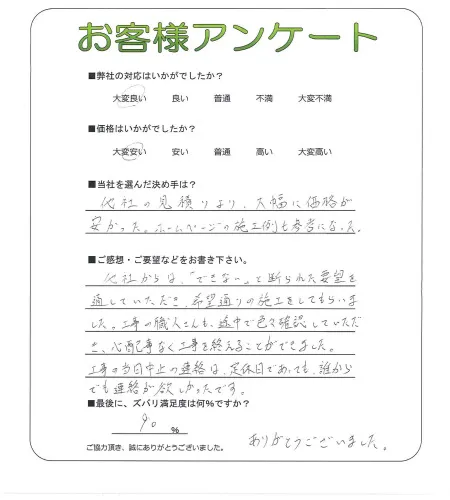 お客様アンケート
■弊社の対応はいかがでしたか？
大変良い 良い 普通 不満 大変不満
■価格はいかがでしたか？
大変安い 安い 普通 高い 大変高い
■当社を選んだ決め手は？
他社の見積りより、大幅に価格が
安かった。ホームページの施工例も参考になった。
■ご感想・ご要望などをお書き下さい。
他社からは、「できない」と断られた要望を
通していただき、希望通りの施工をしてもらいま
した。工事の職人さんも、途中で色々確認していただ
き、心配事なく工事を終えることができました。
工事の当日中止の連絡は、定休日であっても、誰から
でも連絡が欲しかったです。
■最後に、ズバリ満足度は何%ですか？
90 %
ありがとうございました。
ご協力頂き、誠にありがとうございました。